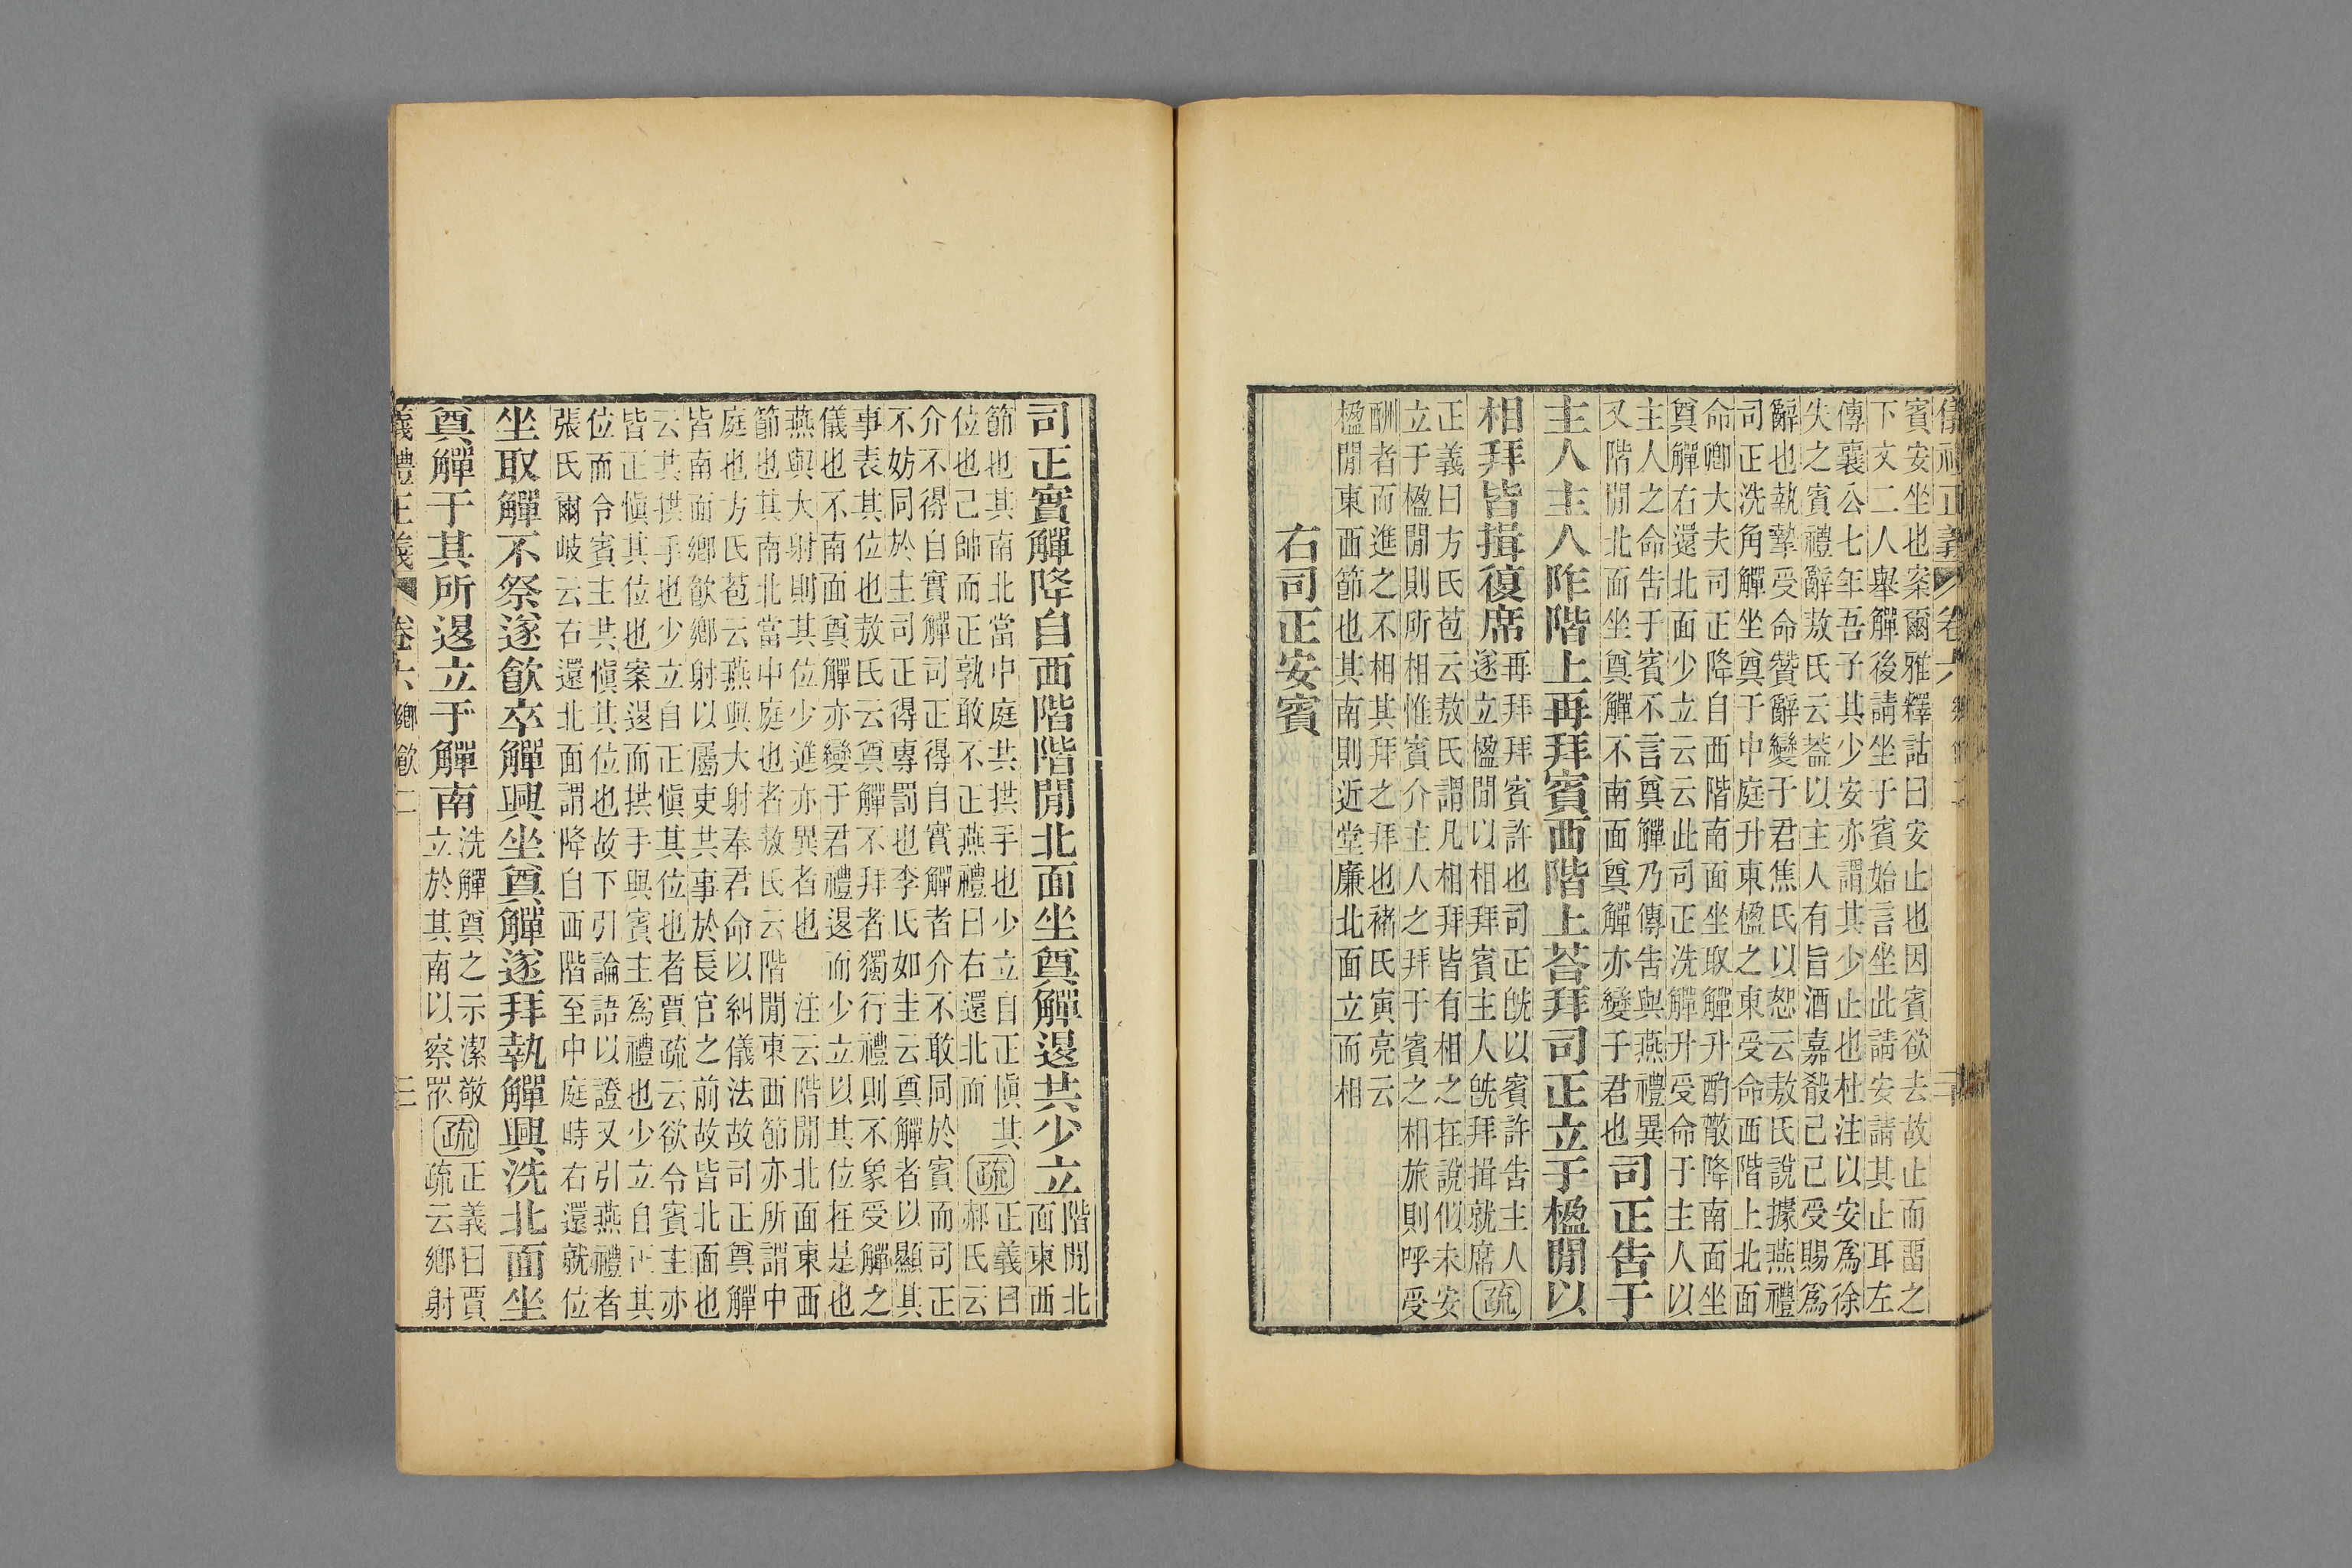 儀禮正義 卷六 三
賓安坐也案爾雅釋詁曰安止也因賓欲去故止而畱之
下文二人舉觶後請坐于賓始言坐此請安請其止耳左
傳襄公七年吾子其少安亦謂其少止也杜注以安爲徐
失之賓禮辭敖氏云葢以主人有旨酒嘉殽己已受賜爲
辭也執摯受命贊辭變于君焦氏以恕云敖氏說據燕禮
司正洗角觶坐奠于中庭升東楹之東受命西階上北面
命卿大夫司正降自西階南面坐取觶升酌散降南面坐
奠觶右還北面少立云云此司正洗觶升受命于主人以
主人之命告于賓不言奠觶乃傳告與燕禮異
又階閒北面坐奠觶不南面奠觶亦變于君也
司正告于
主人主人阼階上再拜賓西階上荅拜司正立于楹閒以
相拜皆揖復席
再拜拜賓許也司正旣以賓許告主人
遂立楹閒以相拜賓主人旣拜揖就席疏
正義曰方氏苞云敖氏謂凡相拜皆有相之在說似未安
立于楹閒則所相惟賓介主人之拜于賓之相旅則呼受
酬者而進之不相其拜之拜也褚氏寅亮云
楹閒東西節也其南則近堂廉北面立而相
右司正安賓
司正實觶降自西階階閒北面坐奠觶退共少立
階閒北
面東西
節也其南北當中庭共拱手也少立自正愼其
位也己帥而正孰敢不正燕禮曰右還北面疏
正義曰
郝氏云
介不得自實觶司正得自實觶者介不敢同於賓而司正
不妨同於主司正得專罰也李氏如主云奠觶者以顯其
事表其位也敖氏云奠觶不拜者獨行禮則不象受觶之
儀也不南面奠觶亦變于君禮退而少立以其位在是也
燕與大射則其位少進亦異者也 注云階閒北面東西
節也其南北當中庭也者敖氏云階閒東西節亦所謂中
庭也方氏苞云燕與大射奉君命以糾儀法故司正奠觶
皆南面鄉飲鄉射以屬吏共事於長官之前故皆北面也
云共拱手也少立自正愼其位也者賈疏云欲令賓主亦
皆正愼其位也案退而拱手與賓主爲禮也少立自正其
位而令賓主其愼其位也故下引論語以證又引燕禮者
張氏爾岐云右還北面謂降自西階至中庭時右還就位
坐取觶不祭遂飮卒觶興坐奠觶遂拜執觶興洗北面坐
奠觶于其所退立于觶南
洗觶奠之示潔敬
立於其南以察眾疏
正義曰賈
疏云鄉射
義禮正義 卷六 鄉飮二 三